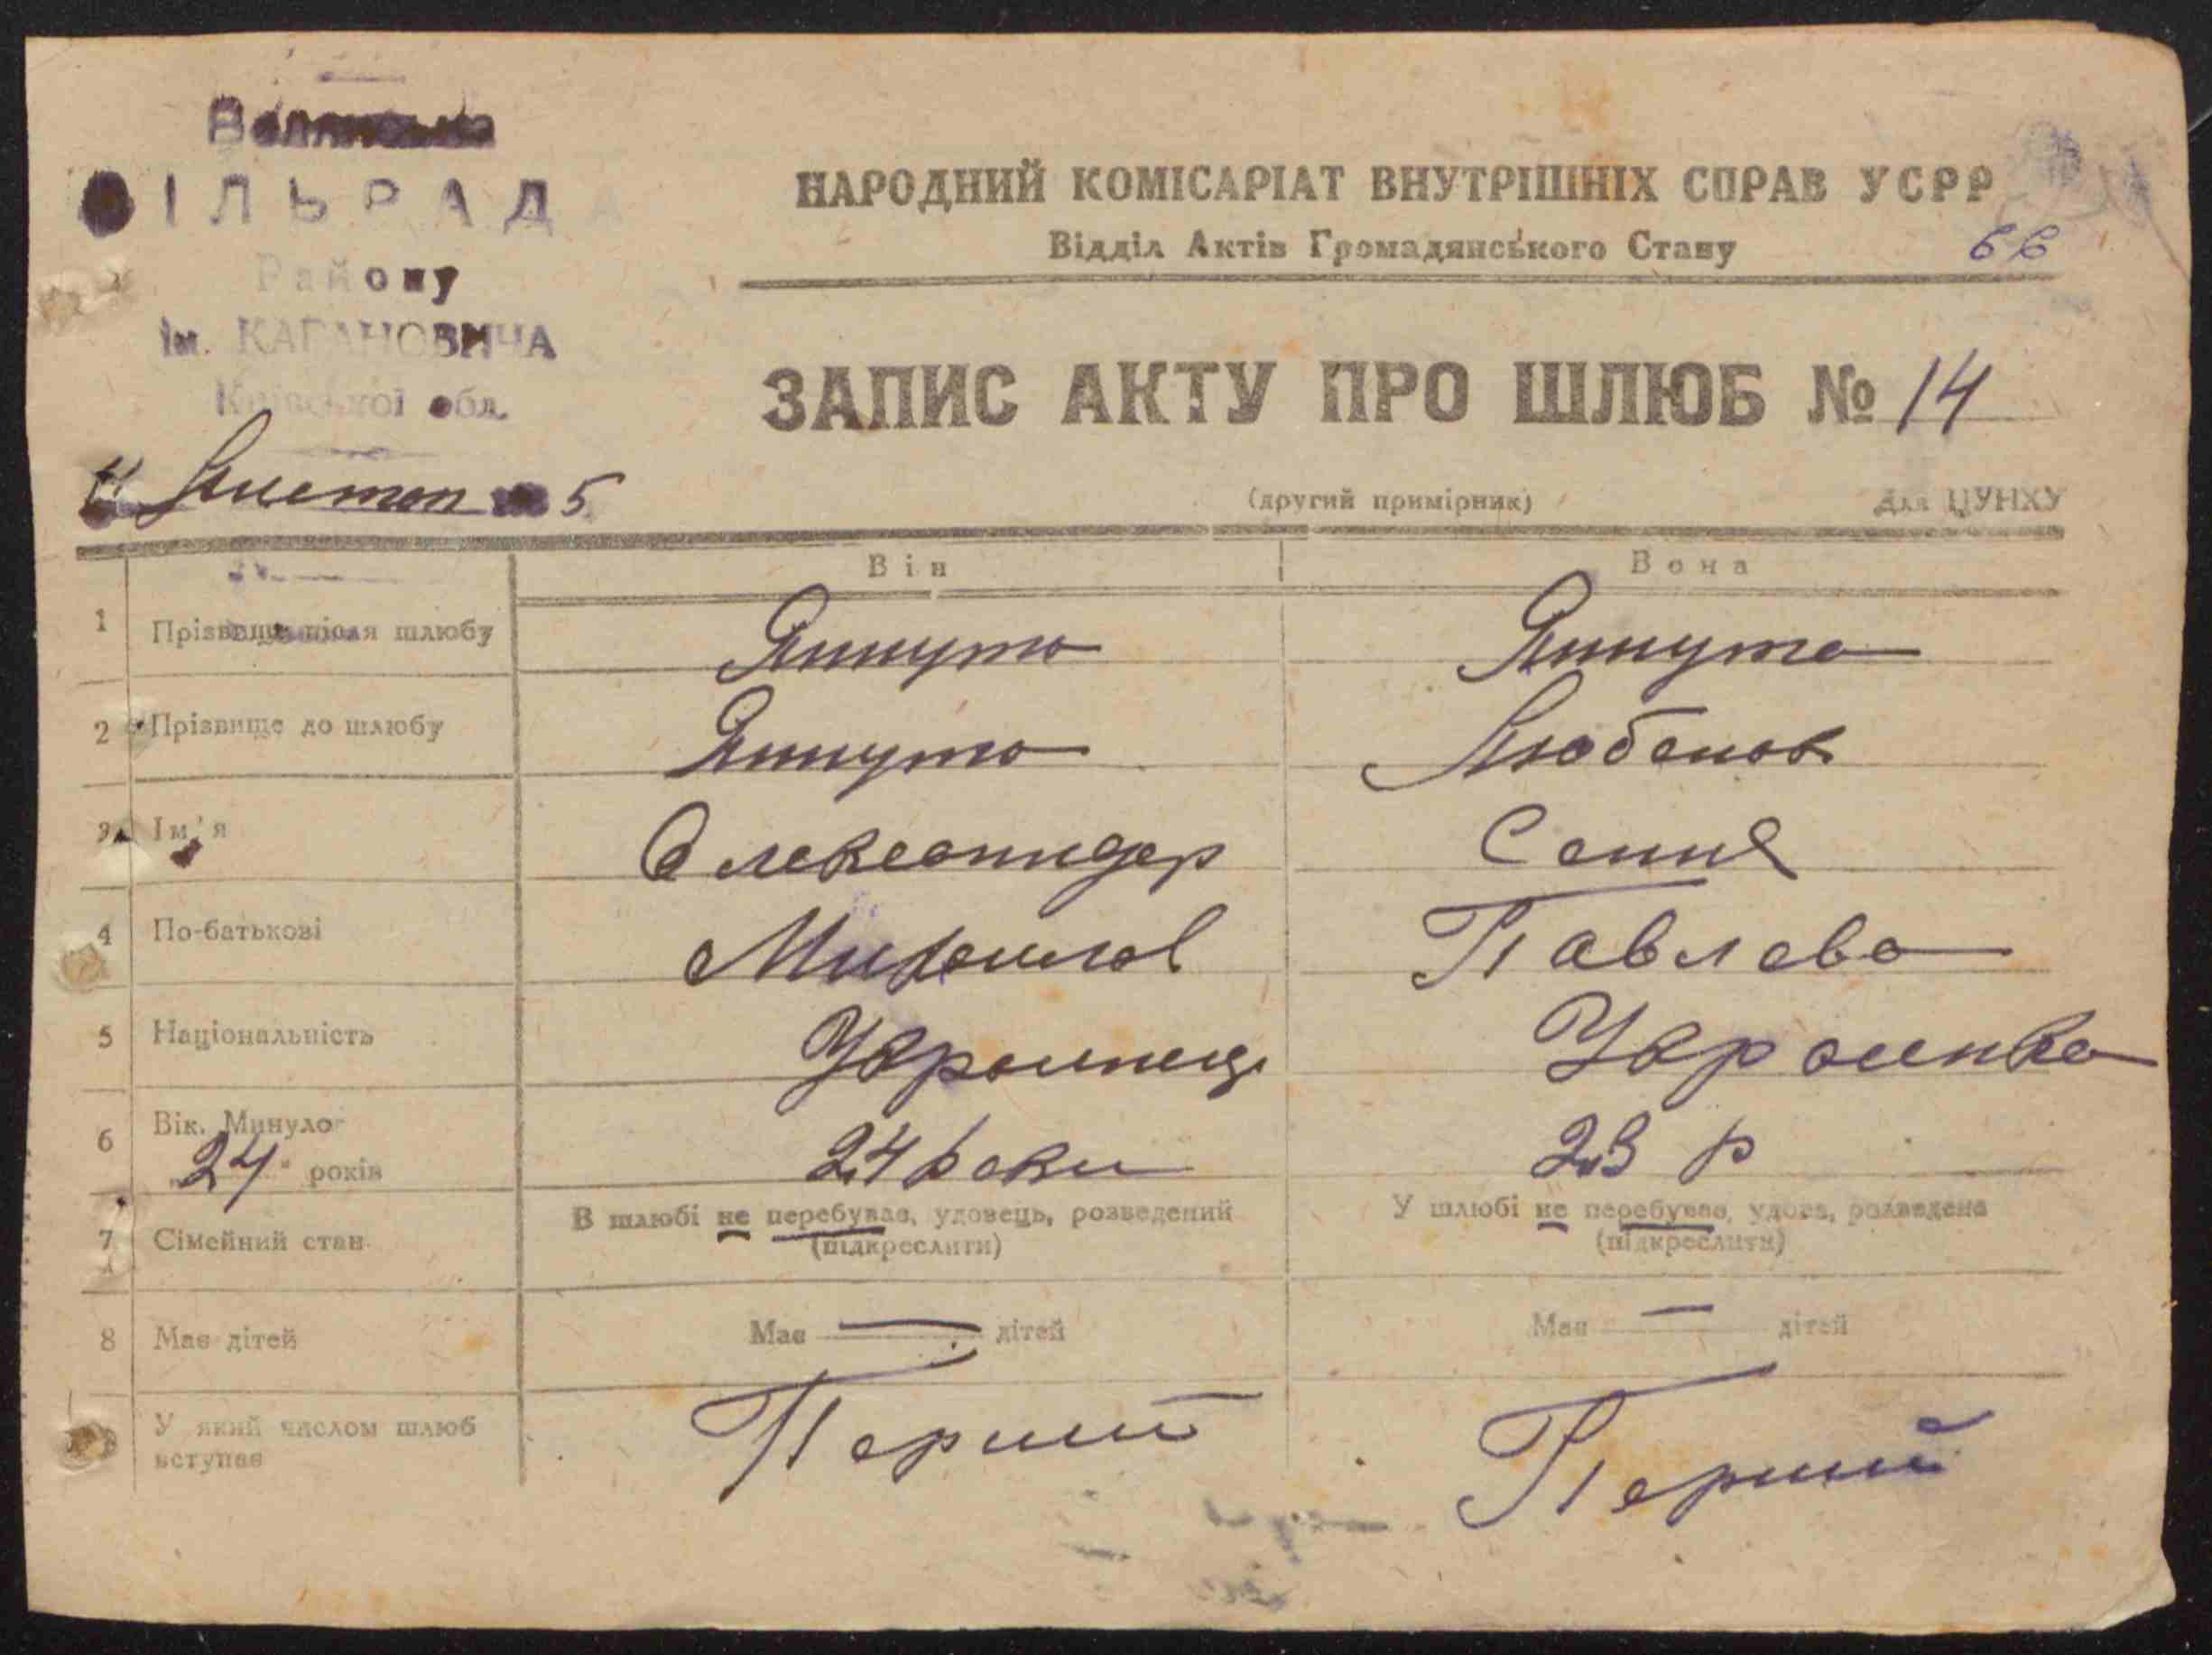 ІЛЬРАДА
Району
ім. КАГАНОВИЧА
Київської обл.
НАРОДНИЙ КОМІСАРІАТ ВНУТРІШНІХ СПРАВ УСРР
Відділ Актів Громадянського Стану
66
ЗАПИС АКТУ ПРО ШЛЮБ № 14
Листоп 5
(другий примірник) Для ЦУНХУ
Він Вона
1 Прізвище після шлюбу
2 Прізвище до шлюбу
3 Ім'я Олександер
4 По-батькові Михайлов Павлова
5 Національність Українець Українка
6 Вік. Минуло
24 років 24 роки 23 р
7 Сімейний стан В шлюбі не перебуває, удовець, розведений У шлюбі не перебуває, удова, розведена
(підкреслити) (підкреслити)
8 Має дітей Має — дітей Має — дітей
У який числом шлюб
вступає Перший Перший